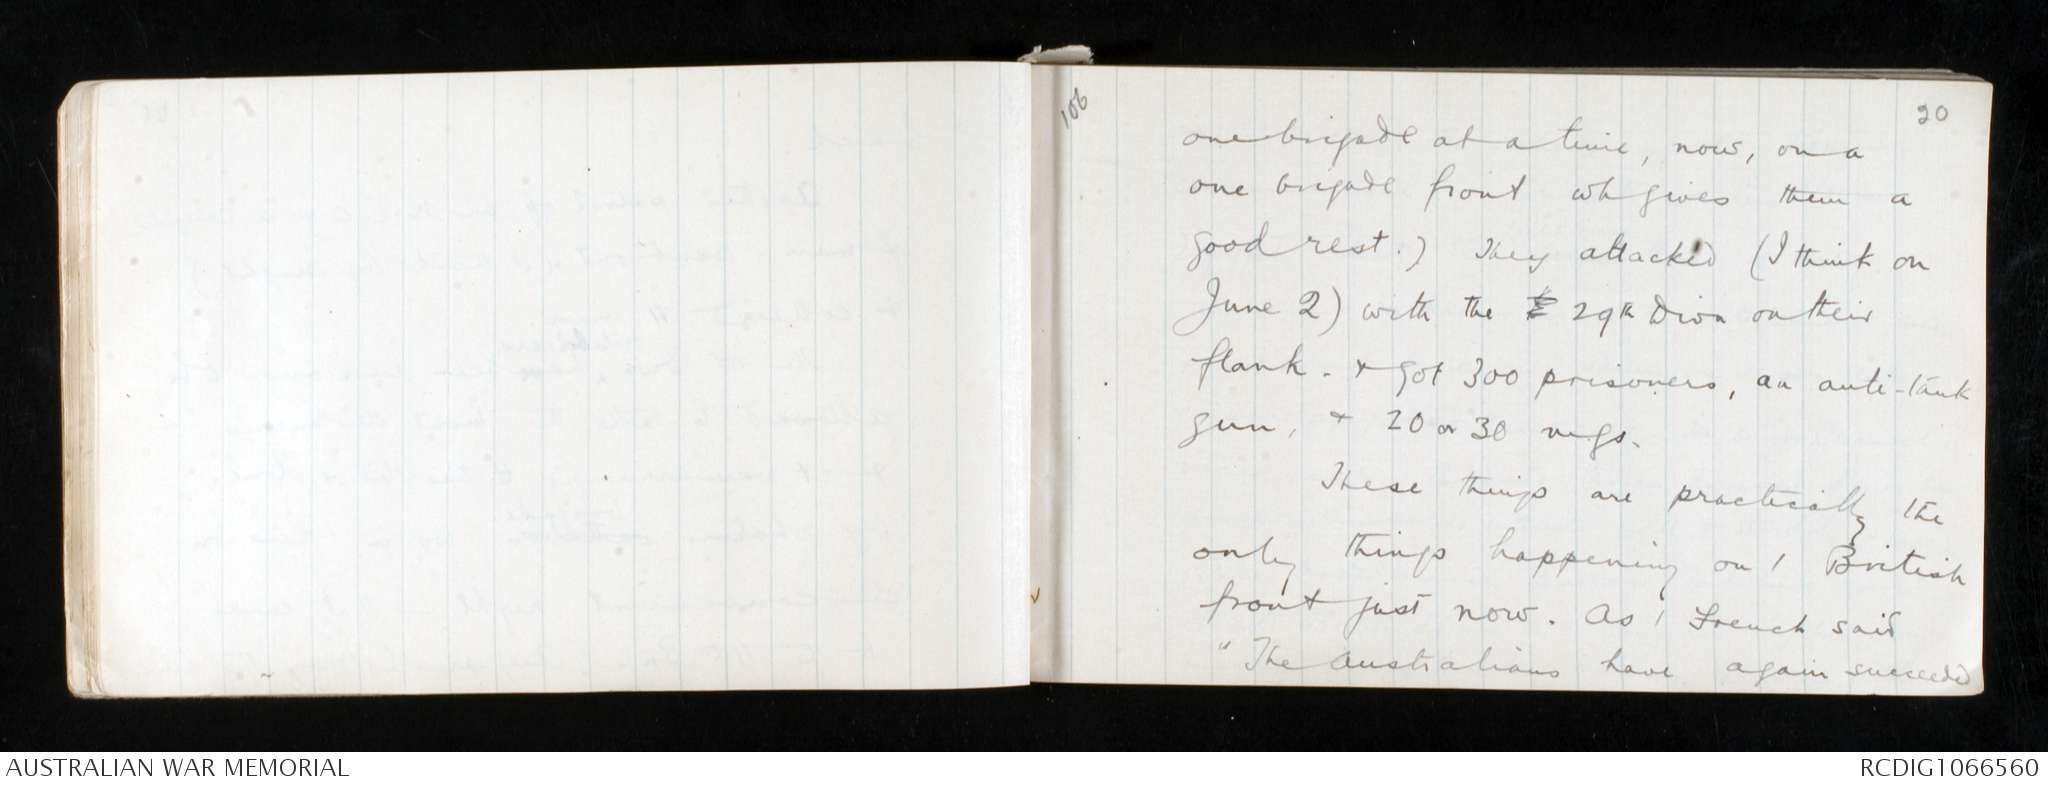 106
20
one brigade at a time, now, on a
one brigade front wh gives them a
good rest.) They attacked (I think on
June 2) with the 29th Divn on their
flank. & got 300 prisoners, an anti-tank
gun, & 20 or 30 m.gs.
These things are practically the
only things happening on / British
front just now. As / French said
"The Australians have again succeeded
AUSTRALIAN WAR MEMORIAL
RCDIG1066560